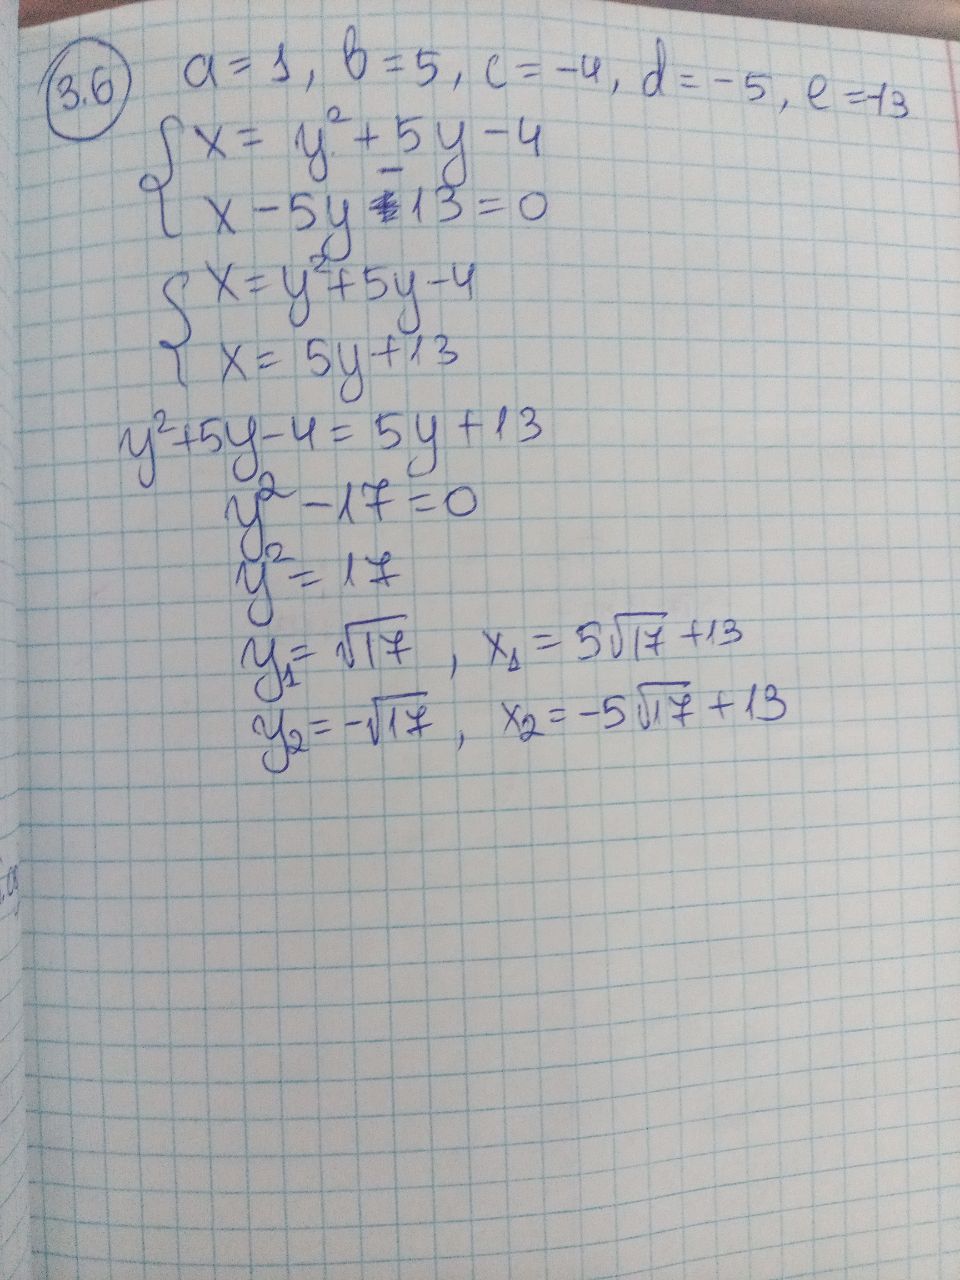 3.6 a = 1, b = 5, c = -4, d = -5, e = -13
x = y² + 5y - 4
x - 5y - 13 = 0
x = y² + 5y - 4
x = 5y + 13
y² + 5y - 4 = 5y + 13
y² - 17 = 0
y² = 17
y₁ = √17 , x₁ = 5√17 + 13
y₂ = -√17 , x₂ = -5√17 + 13